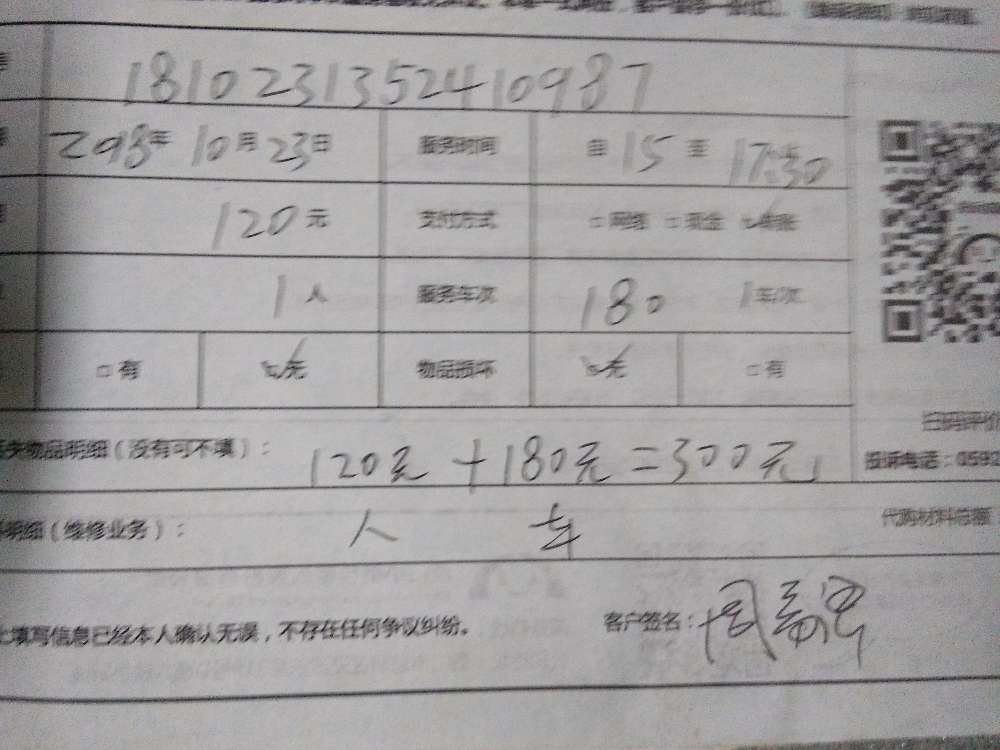 1810231352410987
2018年 10月 23日 服务时间 自 15 至 17:30
120元 支付方式 □网络 □现金 转账
1人 服务车次 180 1车/次
□有 无 物品损坏 无 □有
扫码评价
失物品明细(没有可不填): 120元+180元=300元 投诉电话:0592
明细(维修业务): 人 车 代购材料总额
上填写信息已经本人确认无误,不存在任何争议纠纷。 客户签名: